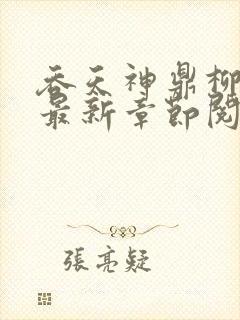 吞天神鼎柳
最新章节阅
張亮疑